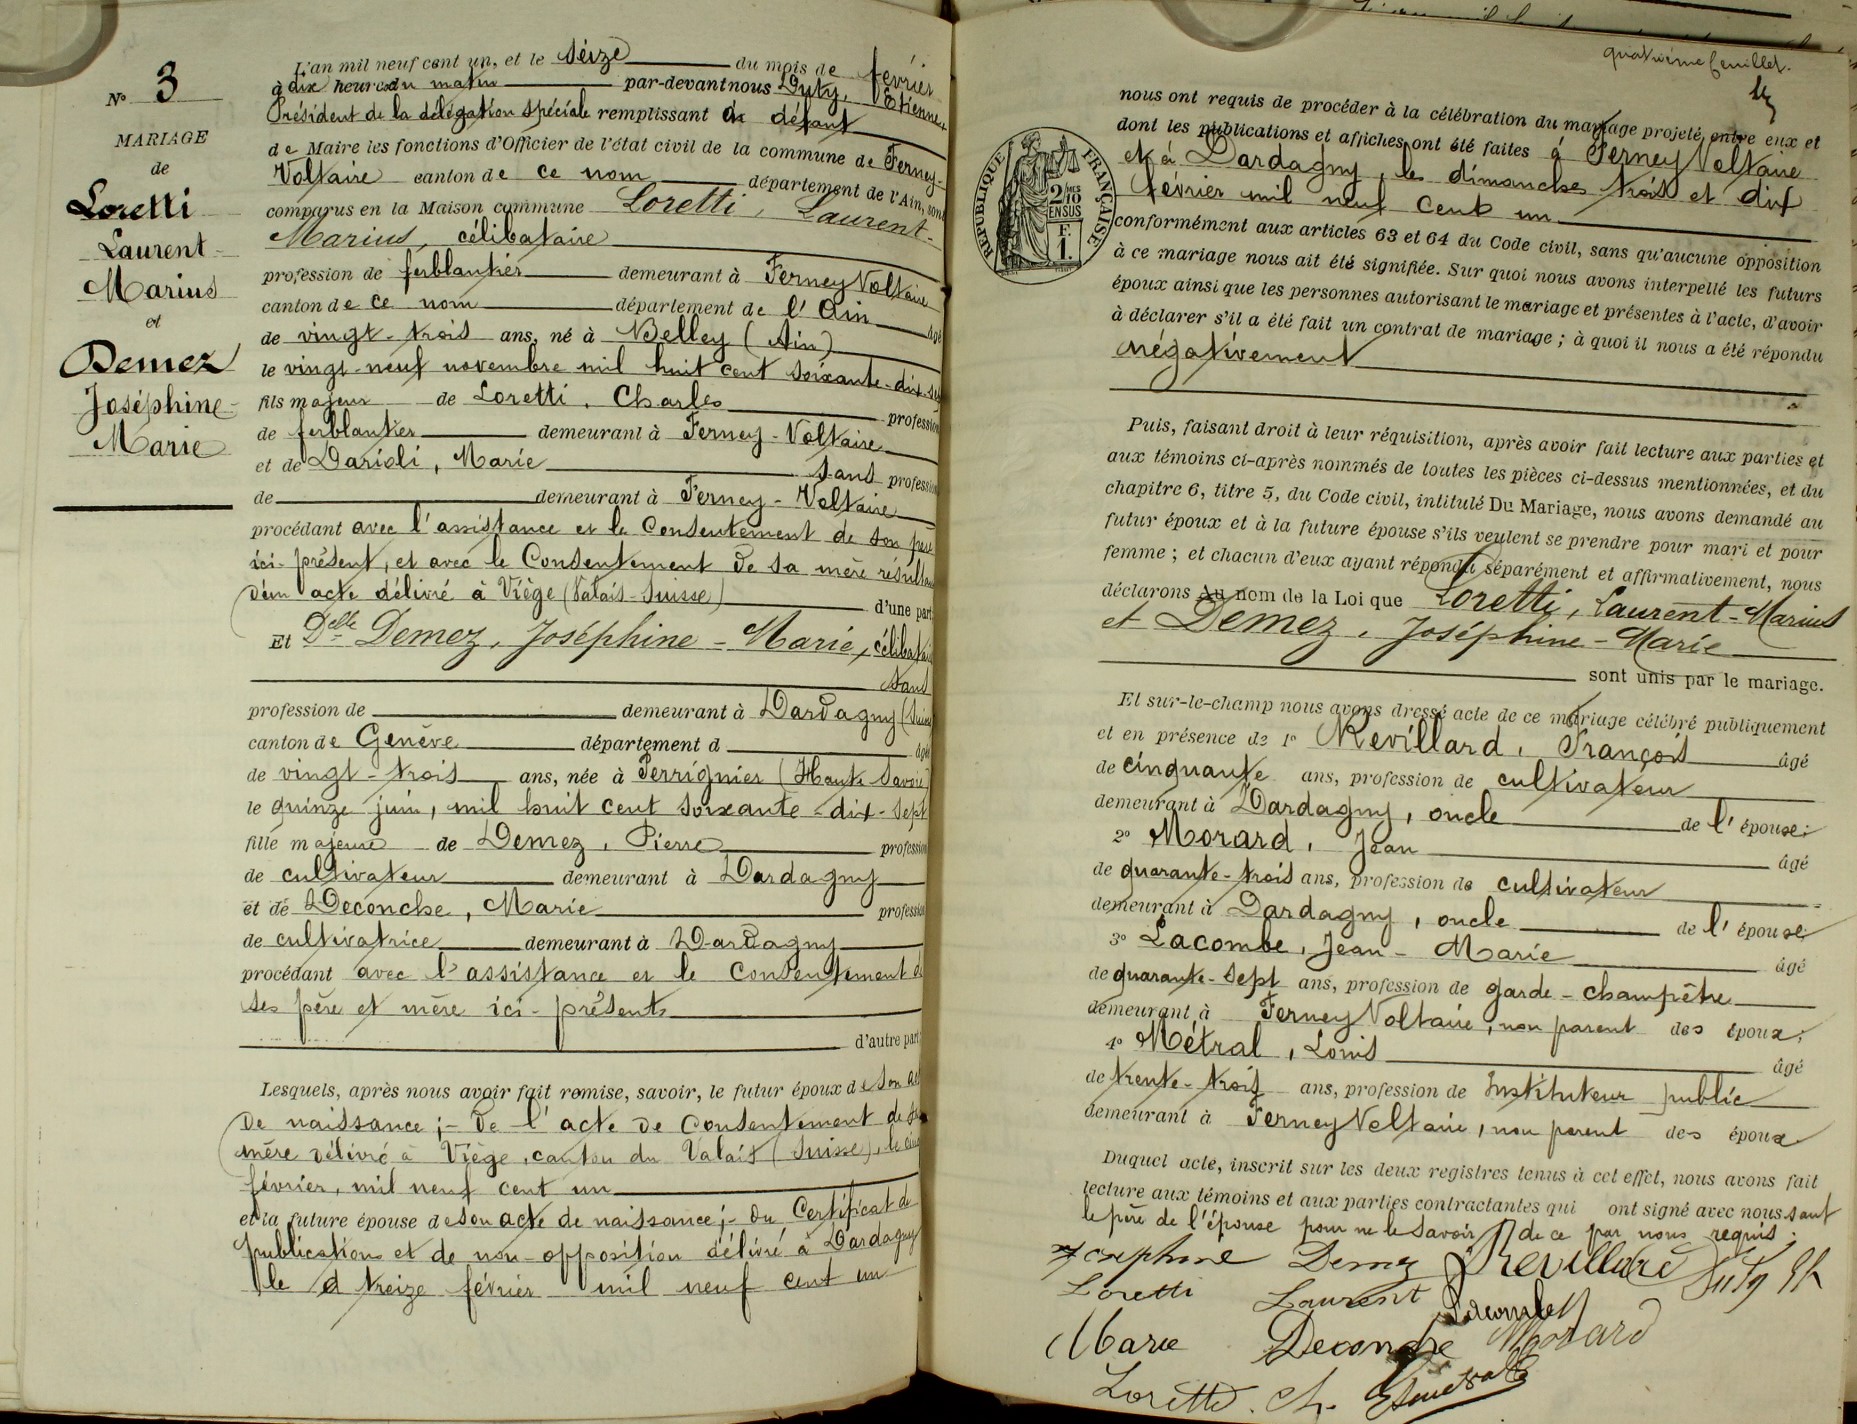 N° 3
MARIAGE
de
Loretti
Laurent-
Marius
et
Demez
Joséphine-
Marie
L'an mil neuf cent un, et le seize du mois de février
à dix heures du matin par-devant nous Duty, Etienne
Président de la délégation spéciale remplissant à défaut
de Maire les fonctions d'Officier de l'état civil de la commune de Ferney-
Voltaire canton de ce nom département de l'Ain, sont
comparus en la Maison commune Loretti, Laurent-
Marius, célibataire
profession de ferblantier demeurant à Ferney Voltaire
canton de ce nom département de l'Ain âgé
de vingt-trois ans, né à Belley (Ain)
le vingt-neuf novembre mil huit cent soixante-dix-sept
fils majeur de Loretti, Charles profession
de ferblantier demeurant à Ferney-Voltaire
et de Darioli, Marie sans profession
de demeurant à Ferney-Voltaire
procédant avec l'assistance et le Consentement de son père
ici-présent, et avec le Consentement de sa mère résultant
d'un acte délivré à Viège (Valais-Suisse) d'une part
Et Delle Demez, Joséphine-Marie, célibataire
sans
profession de demeurant à Dardagny (Suisse)
canton de Genève département d âgée
de vingt-trois ans, née à Perrignier (Haute Savoie)
le quinze juin, mil huit cent soixante-dix-sept
fille majeure de Demez, Pierre profession
de cultivateur demeurant à Dardagny
et de Deconche, Marie profession
de cultivatrice demeurant à Dardagny
procédant avec l'assistance et le Consentement de
ses père et mère ici-présents
d'autre part
Lesquels, après nous avoir fait remise, savoir, le futur époux de son acte
de naissance;- de l'acte de Consentement de sa
mère délivré à Viège, canton du Valais (Suisse), le cinq
février, mil neuf cent un
et la future épouse de son acte de naissance;- du Certificat de
publications et de non-opposition délivré à Dardagny
le treize février mil neuf cent un
quatrième feuillet.
nous ont requis de procéder à la célébration du mariage projeté entre eux et
dont les publications et affiches ont été faites à Ferney Voltaire
et à Dardagny, les dimanches trois et dix
février mil neuf cent un
RÉPUBLIQUE FRANÇAISE
2/10 MES
EN SUS
F.
1.
conformément aux articles 63 et 64 du Code civil, sans qu'aucune opposition
à ce mariage nous ait été signifiée. Sur quoi nous avons interpellé les futurs
époux ainsi que les personnes autorisant le mariage et présentes à l'acte, d'avoir
à déclarer s'il a été fait un contrat de mariage ; à quoi il nous a été répondu
négativement
Puis, faisant droit à leur réquisition, après avoir fait lecture aux parties et
aux témoins ci-après nommés de toutes les pièces ci-dessus mentionnées, et du
chapitre 6, titre 5, du Code civil, intitulé Du Mariage, nous avons demandé au
futur époux et à la future épouse s'ils veulent se prendre pour mari et pour
femme ; et chacun d'eux ayant répondu séparément et affirmativement, nous
déclarons Au nom de la Loi que Loretti, Laurent-Marius
et Demez, Joséphine-Marie
sont unis par le mariage.
Et sur-le-champ nous avons dressé acte de ce mariage célébré publiquement
et en présence de 1° Revillard, François âgé
de cinquante ans, profession de cultivateur
demeurant à Dardagny, oncle de l'épouse;
2° Morard, Jean âgé
de quarante-trois ans, profession de cultivateur
demeurant à Dardagny, oncle de l'épouse;
3° Lacombe, Jean-Marie âgé
de quarante-sept ans, profession de garde-champêtre
demeurant à Ferney Voltaire, non parent des époux;
4° Métral, Louis âgé
de trente-trois ans, profession de Instituteur public
demeurant à Ferney Voltaire, non parent des époux
Duquel acte, inscrit sur les deux registres tenus à cet effet, nous avons fait
lecture aux témoins et aux parties contractantes qui ont signé avec nous sauf
le père de l'épouse pour ne le savoir de ce par nous requis.
Josephine Demez Revillard Duty Et
Loretti Laurent Lacombe
Marie Deconche Morard
Loretti. Ch. LMétral